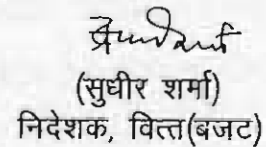 (सुधीर शर्मा)
निदेशक, वित्त(बजट)